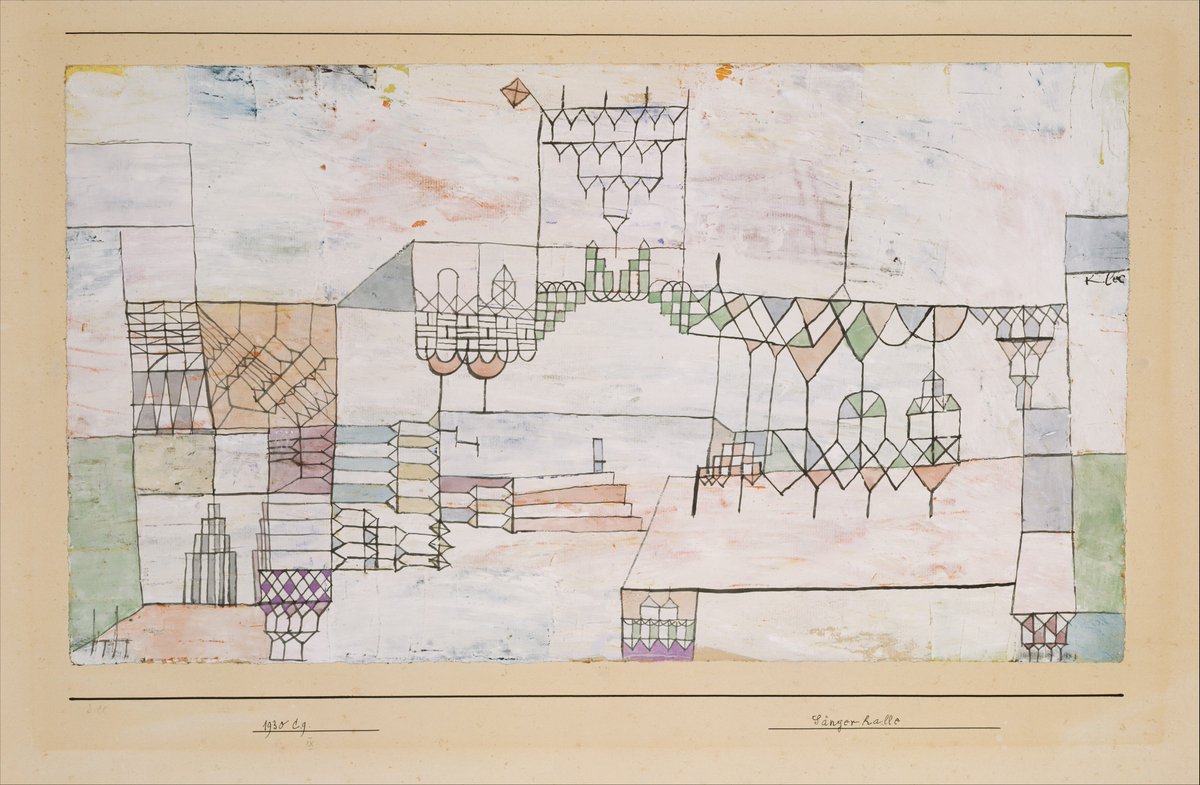 Klee
1930 C9.
IX
Sängerhalle